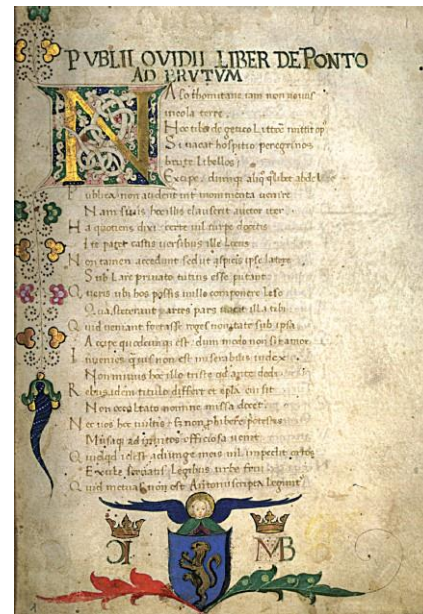 PVBLII OVIDII LIBER DE PONTO
AD BRVTVM
NAso thomitane iam non nouus
incola terre
Hoc tibi de getico Littore mittit op
Si uacat hospitio peregrinos
brute Libellos
Excipe
Publica non audent monumenta uenire
Nam suus hoc illis clauserit auctor iter
Ha quotiens dixi certe nil turpe docetis
Ite patet castis uersibus ille Locus
Non tamen accedunt sed ut aspicis ipse latere
Sub Lare priuato tutius esse putant
Queris ubi hos possis nullo componere Leso
Qua steterant artes pars uacat illa tibi
Quid ueniant fortasse roges nouitate sub ipsa
Accipe quodcunque est dum modo non sit amor
Inuenies quis non est miserabilis index
Non minus hoc illo triste qd ante dedi
Rebus idem titulo differt et epla cui sit
Non occultato nomine missa docet
Nec uos hoc uultis sz non phibere potestis
Musaqz ad inuitos officiosa uenit
Quidqd id est adiunge meis nil impedit ortos
Exule seruatis Legibus urbe frui
Quid metuas non est Antoni scripta Leguntur
CI MB
1